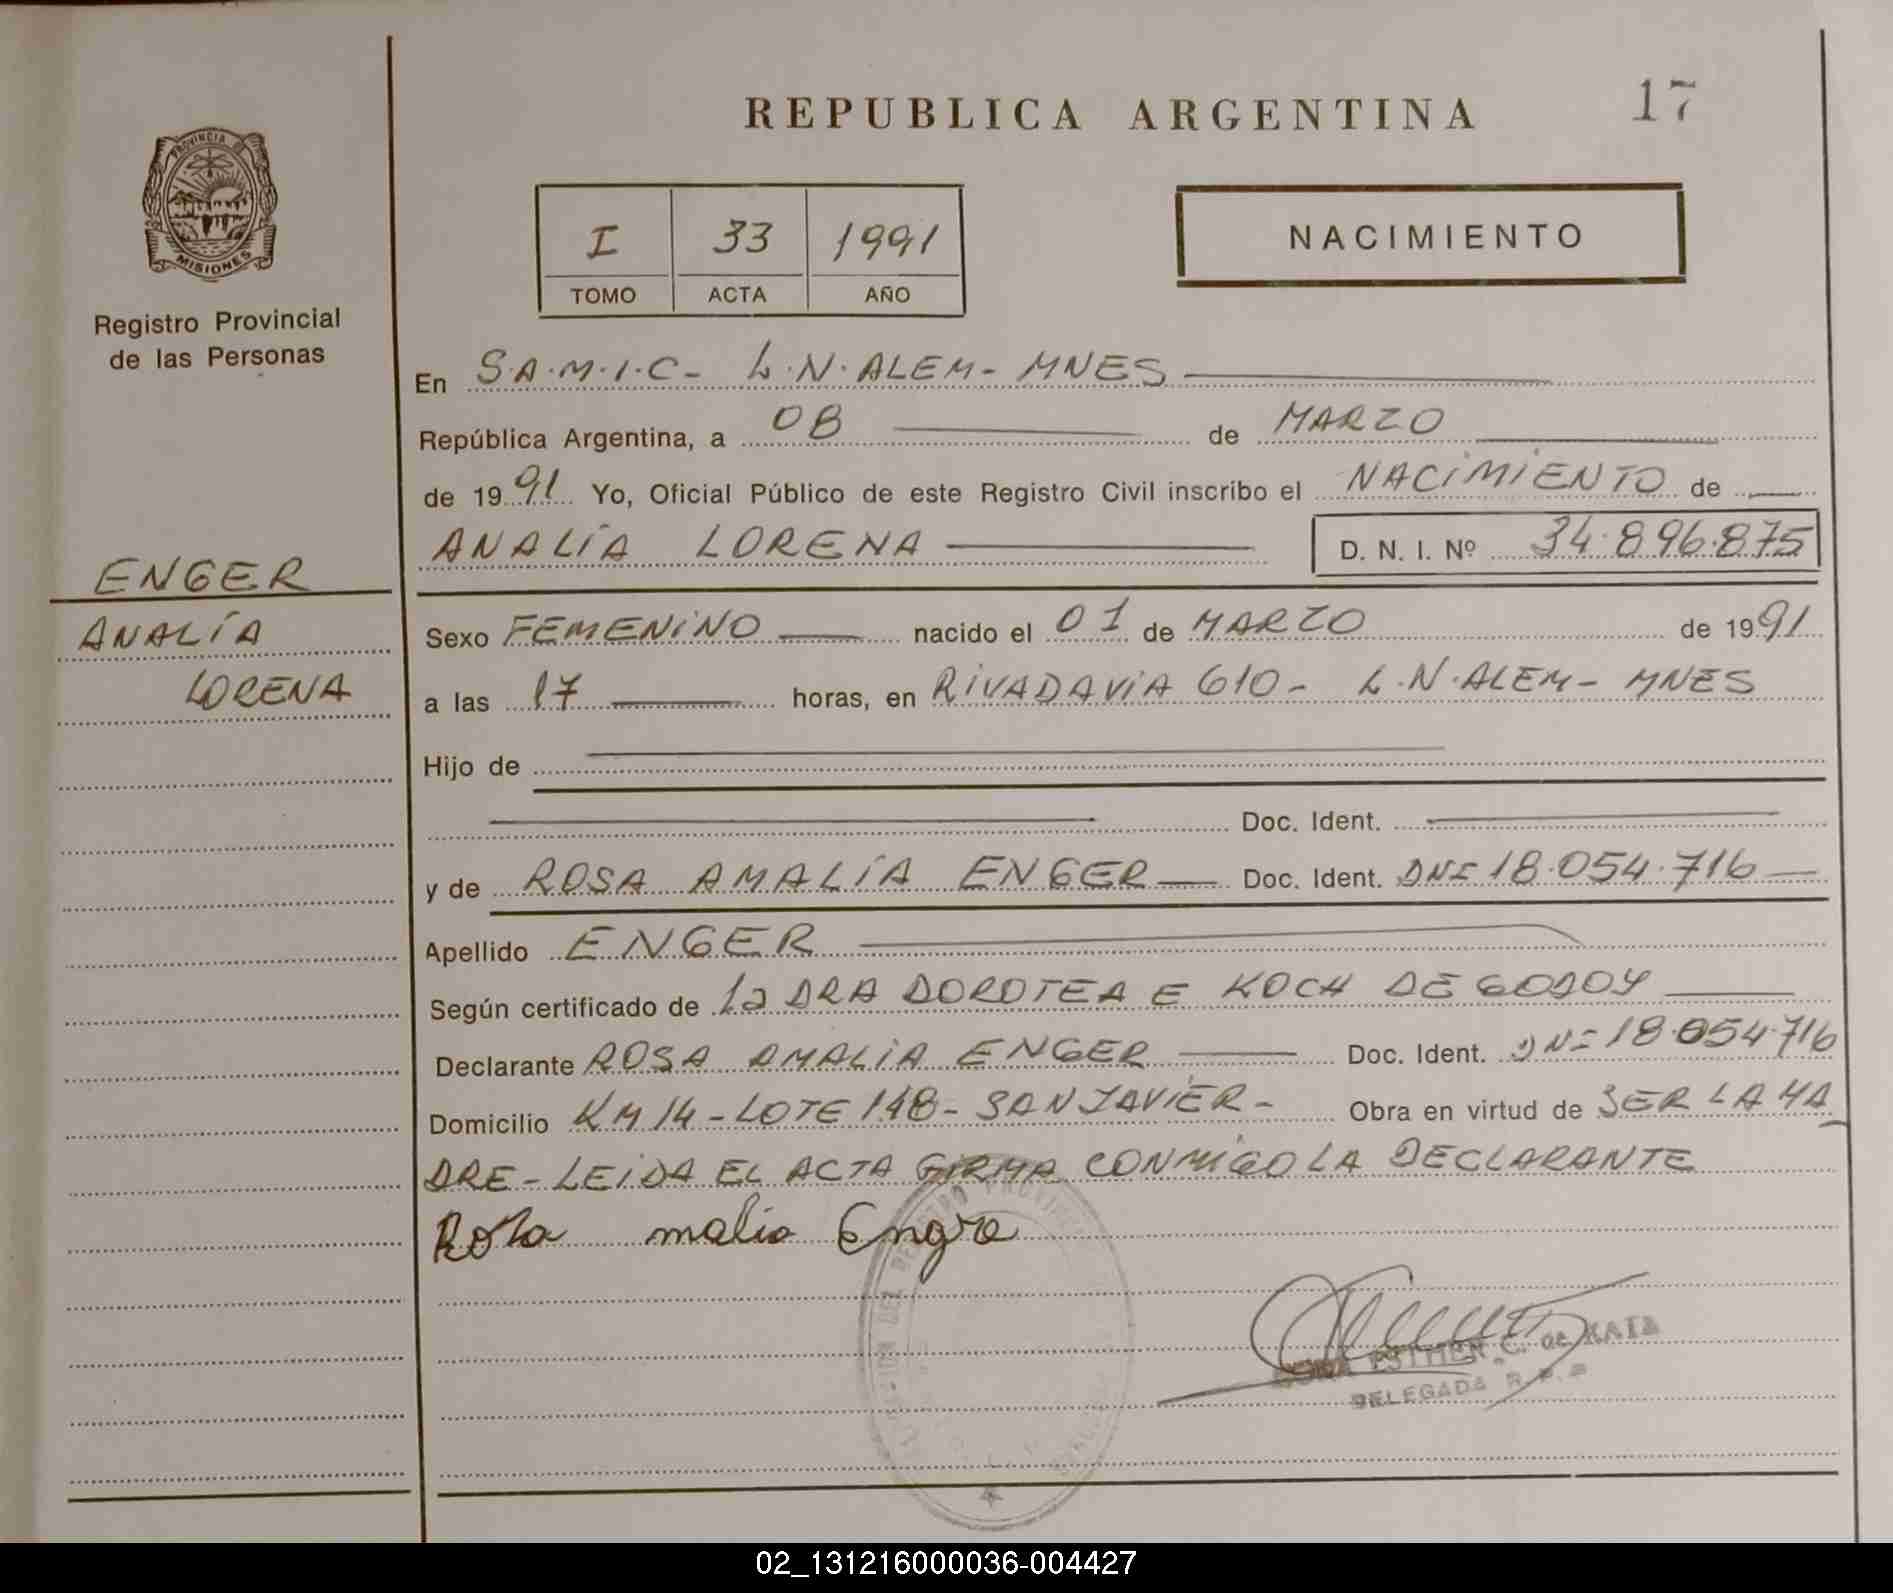 REPUBLICA ARGENTINA
17
PROVINCIA DE
MISIONES
Registro Provincial
de las Personas
I 33 1991
TOMO ACTA AÑO
NACIMIENTO
En S.A.M.I.C- L.N.ALEM- MNES
República Argentina, a 08 de MARZO
de 1991 Yo, Oficial Público de este Registro Civil inscribo el NACIMIENTO de
ANALÍA LORENA D. N. I. Nº 34.896.875
ENGER
ANALÍA
LORENA
Sexo FEMENINO nacido el 01 de MARZO de 1991
a las 17 horas, en RIVADAVIA 610- L.N.ALEM- MNES
Hijo de
Doc. Ident.
y de ROSA AMALÍA ENGER Doc. Ident. DNI 18.054.716
Apellido ENGER
Según certificado de la DRA DOROTEA E KOCH DE GODOY
Declarante ROSA AMALIA ENGER Doc. Ident. DNI 18.054.716
Domicilio KM 14 - LOTE 148 - SAN JAVIER - Obra en virtud de SER LA MA
DRE - LEIDA EL ACTA FIRMA CONMIGO LA DECLARANTE
Rosa malia Engre
ESTHER C. de KATA
DELEGADA R.P.P
02_131216000036-004427